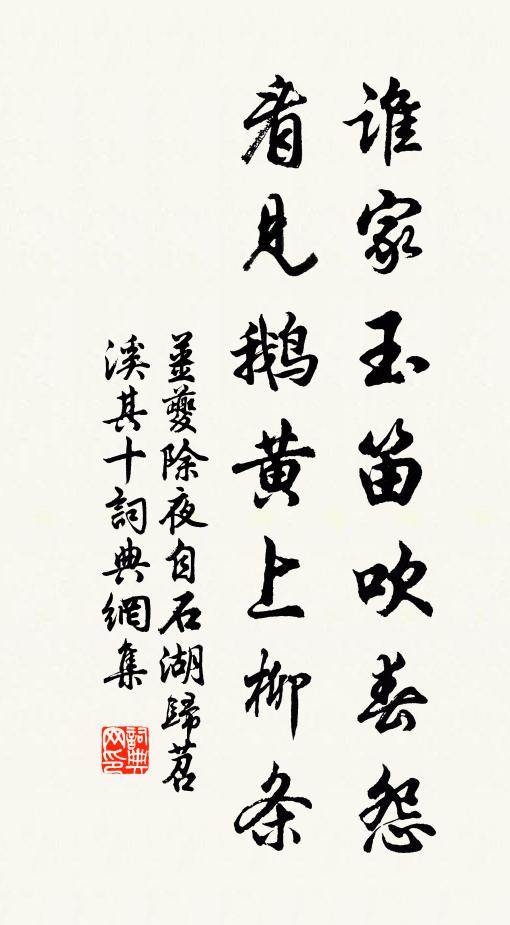 谁家玉笛吹春怨
看见鹅黄上柳条
姜夔除夜自石湖歸苕
溪其十詞典網集
詞典网印